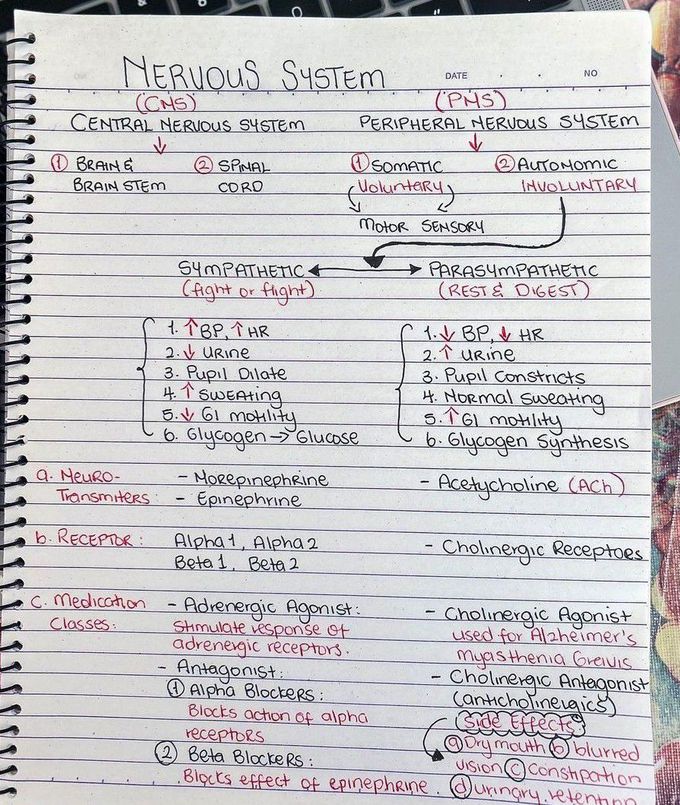 NERVOUS SYSTEM
DATE NO
(CNS) (PNS)
CENTRAL NERVOUS SYSTEM PERIPHERAL NERVOUS SYSTEM
↓ ↓
① BRAIN & ② SPINAL ① SOMATIC ② AUTONOMIC
BRAIN STEM CORD Voluntary INVOLUNTARY
MOTOR SENSORY
SYMPATHETIC ↔ PARASYMPATHETIC
(fight or flight) (REST & DIGEST)
1. ↑ BP, ↑ HR 1. ↓ BP, ↓ HR
2. ↓ Urine 2. ↑ Urine
3. Pupil Dilate 3. Pupil Constricts
4. ↑ Sweating 4. Normal Sweating
5. ↓ GI motility 5. ↑ GI motility
6. Glycogen → Glucose 6. Glycogen Synthesis
a. Neuro- - Morepinephrine - Acetycholine (ACh)
Transmiters: - Epinephrine
b. Receptor: Alpha 1, Alpha 2 - Cholinergic Receptors
Beta 1, Beta 2
c. Medication - Adrenergic Agonist: - Cholinergic Agonist
Classes: Stimulate response of used for Alzheimer's
adrenergic receptors. myasthenia Greivis
- Antagonist: - Cholinergic Antagonist
① Alpha Blockers: (anticholinergics)
Blocks action of alpha Side Effects
receptors ⓐ Dry mouth ⓑ blurred
② Beta Blockers: vision ⓒ Constipation
Blocks effect of epinephrine. ⓓ urinary retention